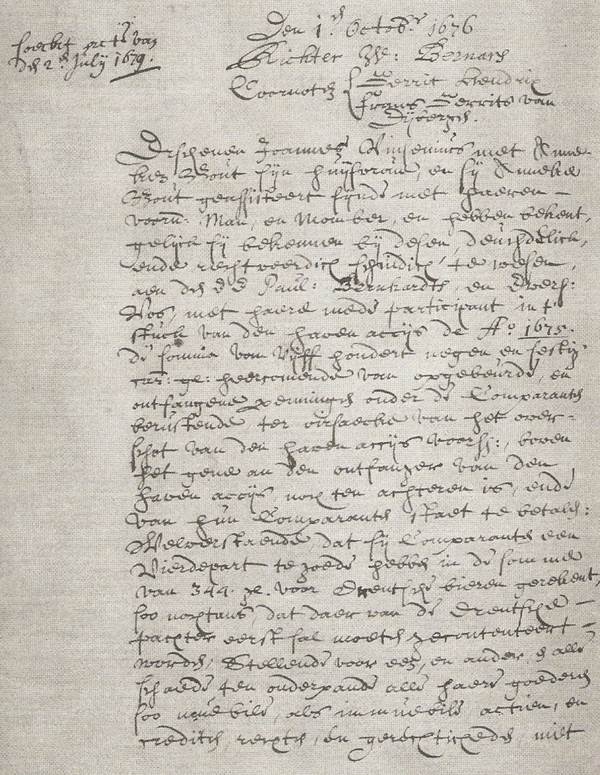 Den 1 October 1676
Richter W: Bernars
Coernoten Gerrit Hendrix
Frans Gerrits van
den 2 July 1679.
Erschenen Joannes met Anne
Bout sijn huijsvrouw, en sij Annekie
Bout geassisteert sijnde met haeren
voorn: Man, en Momber, en hebben bekent,
gelijck sij bekennen bij desen, deuchdelick,
ende rechtveerdich schuldich te wesen,
aen den Paul: Bernhardts, en Evers:
Vos, met haere mede participant in t
stuck van den haven accijs de Aº 1675.
de somma van Vijff hondert negen en sestig
car: gl: heercomende van opgebeurde, en
ontfangene penningh onder de Comparanten
berustende ter oirsaecke van het over-
schot van den haven accijs voors:, boven
het gene an den ontfanger van den
haven accijs noch ten achteren is, ende
van hun Comparanten staet te betalen:
Welverstaende, dat sij Comparanten een
Vierdepart te goede hebben in de somme
van 344. gl. voor Drentsche bieren gerekent,
soo nochtans, dat daer van de Drentsche
pachter eerst sal moeten gecontenteert
worden, Stellende voor een, en ander, alle
schaede ten onderpande alle haere goederen
soo meubile, als immeubile actien, en
crediten, recht, en gerechticheden, niet